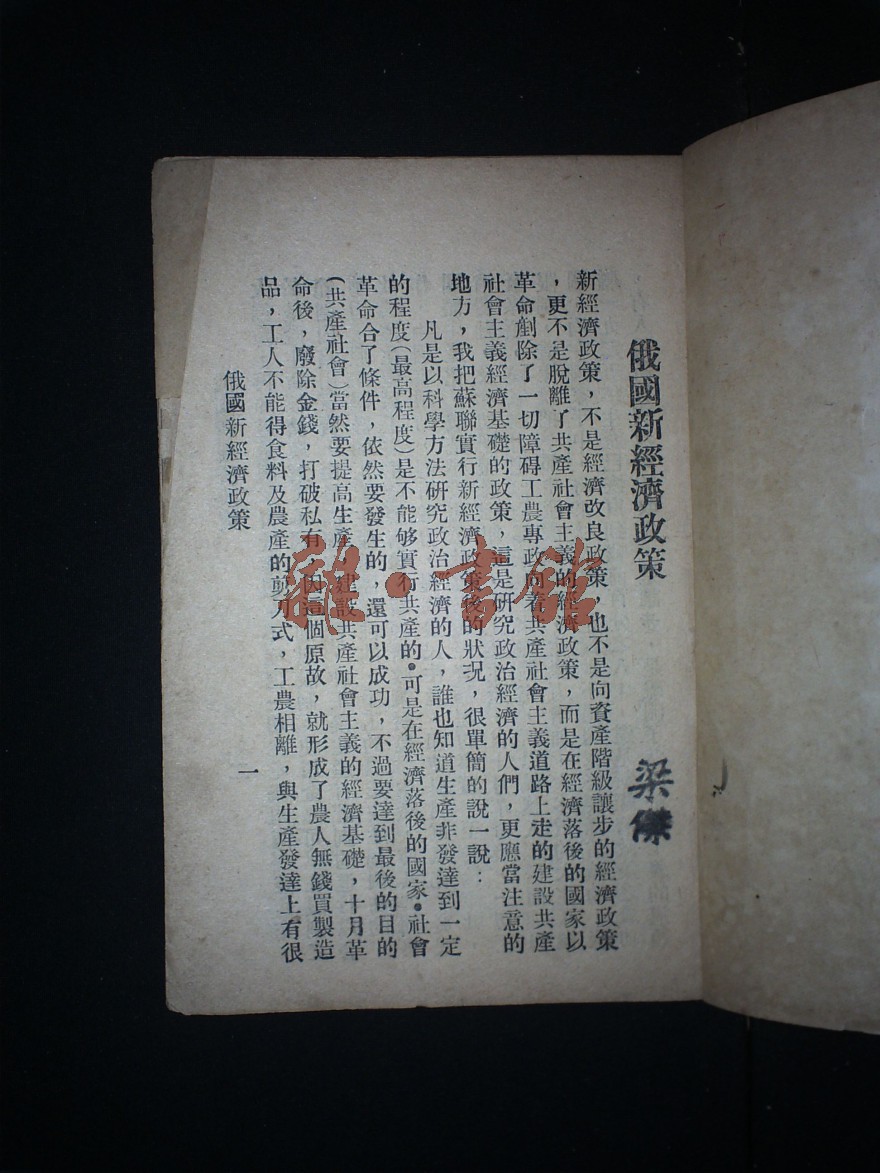 俄國新經濟政策
梁傑
新經濟政策，不是經濟改良政策，也不是向資產階級讓步的經濟政策
，更不是脫離了共產社會主義的經濟政策，而是在經濟落後的國家以
革命剷除了一切障碍工農專政向着共產社會主義道路上走的建設共產
社會主義經濟基礎的政策，這是研究政治經濟的人們，更應當注意的
地方，我把蘇聯實行新經濟政策後的狀況，很單簡的說一說：
凡是以科學方法研究政治經濟的人，誰也知道生產非發達到一定
的程度（最高程度）是不能够實行共產的•可是在經濟落後的國家•社會
革命合了條件，依然要發生的，還可以成功，不過要達到最後的目的
（共產社會）當然要提高生產，建設共產社會主義的經濟基礎，十月革
命後，廢除金錢，打破私有，因這個原故，就形成了農人無錢買製造
品，工人不能得食料及農產的剪刀式，工農相離，與生產發達上有很
俄國新經濟政策
一
雜•書館